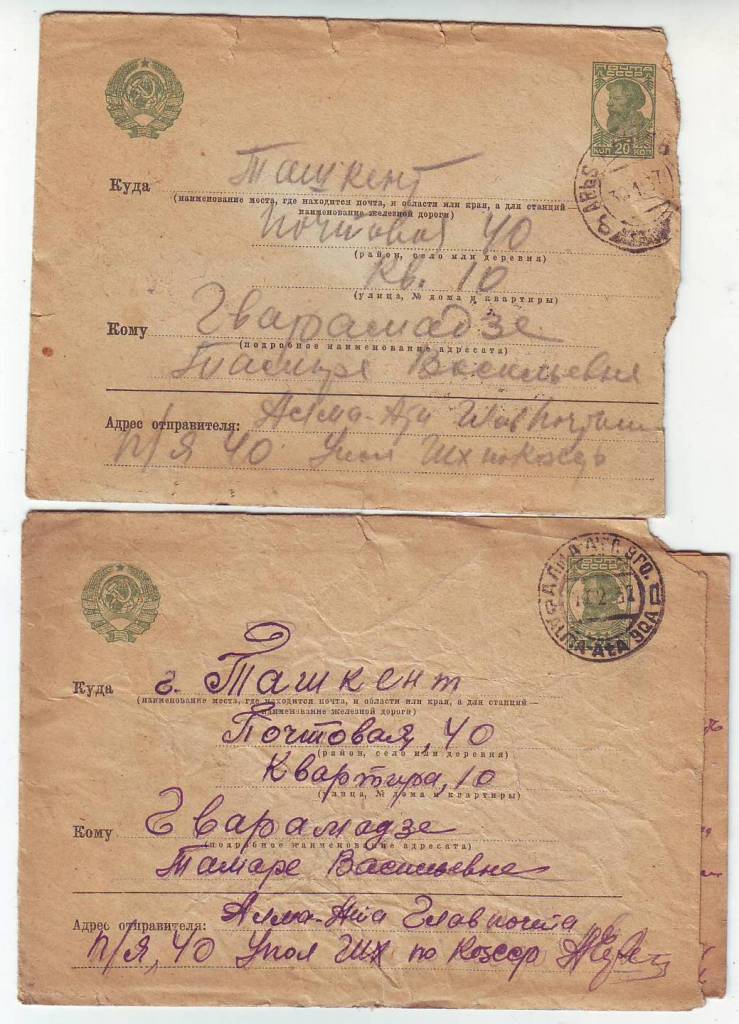 ПОЧТА
СССР
20
КОП КОП
ARЬS
Куда Ташкент
(наименование места, где находится почта, и области или края, а для станций —
наименование железной дороги)
Почтовая 40
(район, село или деревня)
Кв. 10
(улица, № дома и квартиры)
Кому Гварамадзе
(подробное наименование адресата)
Тамаре Васильевне
Адрес отправителя: Алма-Ата
п/я 40 Упол
СССР
АЛМА-АТА
ALMA-ATA
Куда г. Ташкент
(наименование места, где находится почта, и области или края, а для станций —
наименование железной дороги)
Почтовая, 40
(район, село или деревня)
Квартира, 10
(улица, № дома и квартиры)
Кому Гварамадзе
(подробное наименование адресата)
Тамаре Васильевне
Адрес отправителя: Алма-Ата Главпочта
п/я, 40 Упол по